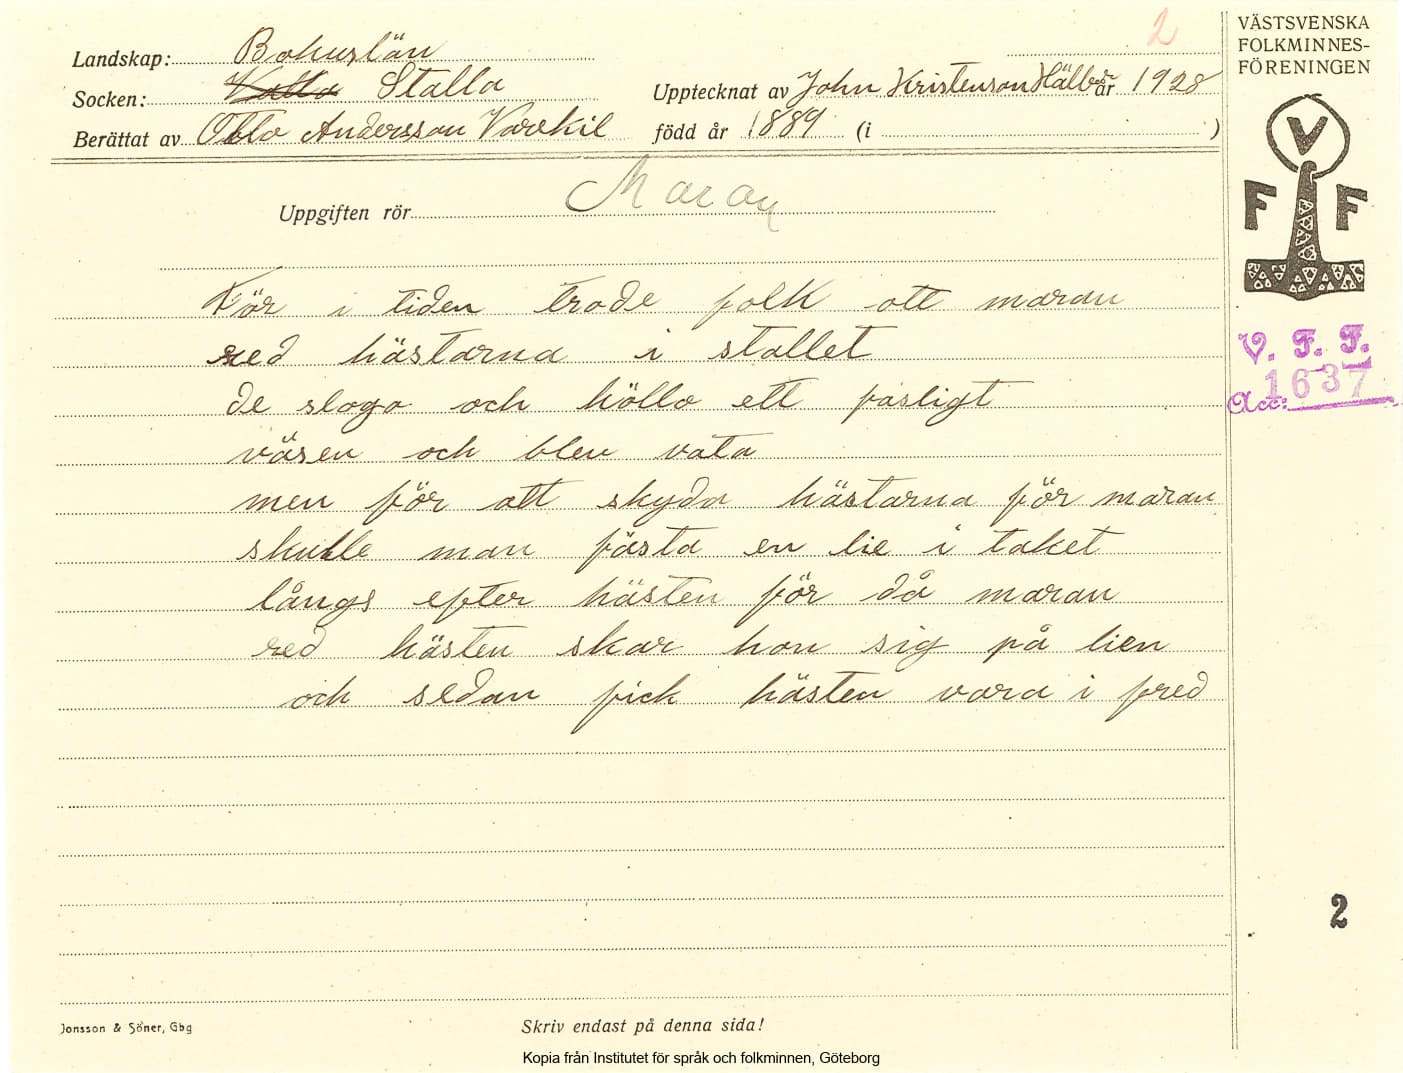 2
VÄSTSVENSKA
FOLKMINNES-
FÖRENINGEN
Landskap: Bohuslän
Socken: Valla Stalla
Upptecknat av John Kristenson Hälle år 1928
Berättat av Otto Andersson Varekil född år 1889 (i )
Uppgiften rör Maran
V
F F
För i tiden trode folk att maran
red hästarna i stallet
de slogo och höllo ett fasligt
väsen och blev vata
men för att skyda hästarna för maran
skulle man fästa en lie i taket
långs efter hästen för då maran
red hästen skar hon sig på lien
och sedan fick hästen vara i fred
V. F. F.
Acc: 1637
2
Jonsson & Söner, Gbg
Skriv endast på denna sida!
Kopia från Institutet för språk och folkminnen, Göteborg